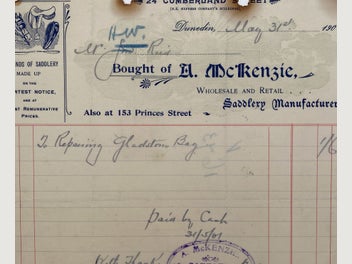 24 CUMBERLAND STREET
(N.Z. EXPRESS COMPANY'S BUILDINGS)
Dunedin, May 31st 190
H.W.
Mr Reid
Bought of A. McKenzie,
WHOLESALE AND RETAIL
Saddlery Manufacturer
Also at 153 Princes Street
NDS OF SADDLERY
MADE UP
ON THE
RTEST NOTICE,
AND AT
ST REMUNERATIVE
PRICES.
To Repairing Gladstone Bag 1/6
paid by Cash
31/5/01
With Thanks
A. McKENZIE